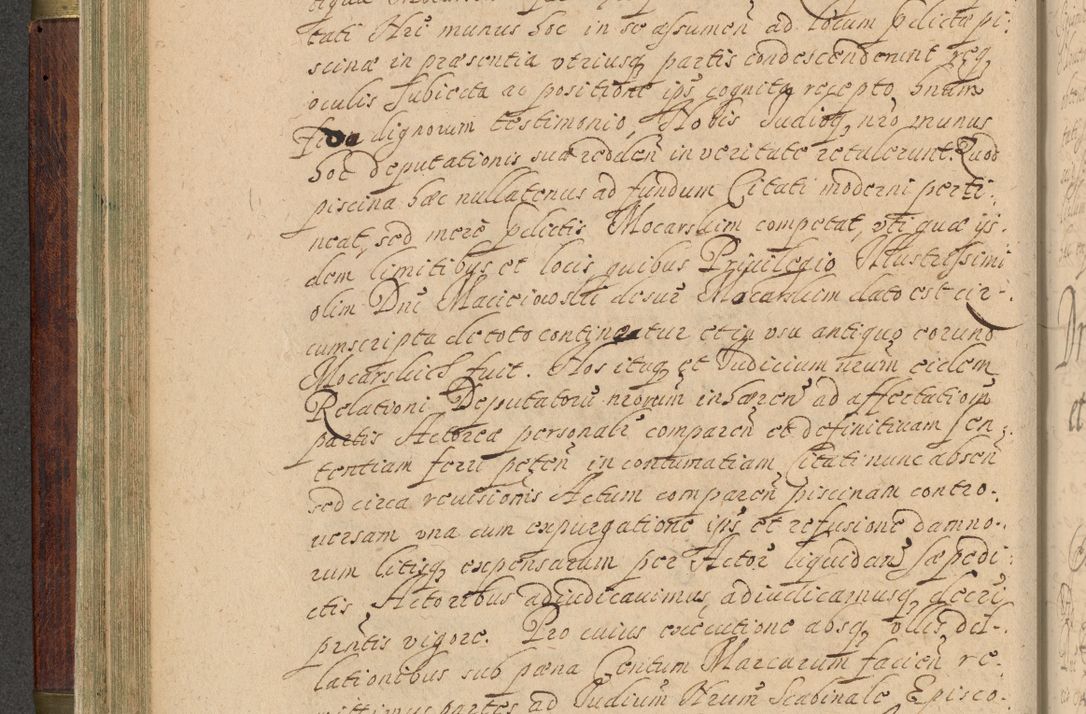 tati Nrê munus hoc in se assumen̄ ad locum pdictæ pi-
scinæ in præsentia vtriusq partis condescenderunt req
oculis subiecta ac positione ips cognitq recepto hnūm
fide dignorum testimonio, Nobis Judioq nro munus
hoc deputationis suæ redden̄ in veritate retulerunt. Quod
piscina hæc nullatenus ad fundum Citati moderni perti-
neat, sed merè pdictis Mocarskim competat, vti quæ ijs-
dem limitibus et locis quibus Priuilegio Illustrissimi
olim Dni Macieiowski desup Mocarskim dato est cir-
cumscripta de toto contineatur et in vsu antiquo eorund
Mocarskich fuit. Nos itaq et Judicium nrum eidem
Relationi Deputatorū nrorūm inhæren̄ ad affectationē
partis Actoreæ personalr comparen̄ et definitiuam sen-
tentiam ferri peten̄ in contumatiam Citati nunc absen̄
sed circa reuisionis Actum comparen̄ piscinam contro-
uersam vna cum expurgatione ips et refusione damno-
rum litisq expensarum per Actor liquidan̄ sæpedi-
ctis Actoribus adiudicauimus, adiudicamusq decri
prntis vigore. Pro cuius executione absq vllis dil-
lationibus sub pæna Centum Marcarum facien̄ re-
mittimus partes ad Judium Nrum Scabinale Episco-